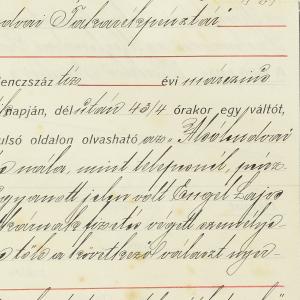 Takarékpénztár
lenczszáz tíz évi márczius
napján, dél után 4 3/4 órakor egy váltót,
ulsó oldalon olvasható az "Alsólendvai
nála, mint telepesnél, pénz-
ugyanott jelen volt Engel Lajos
kárnak fizetés végett személye-
tőle a következő választ nyer-